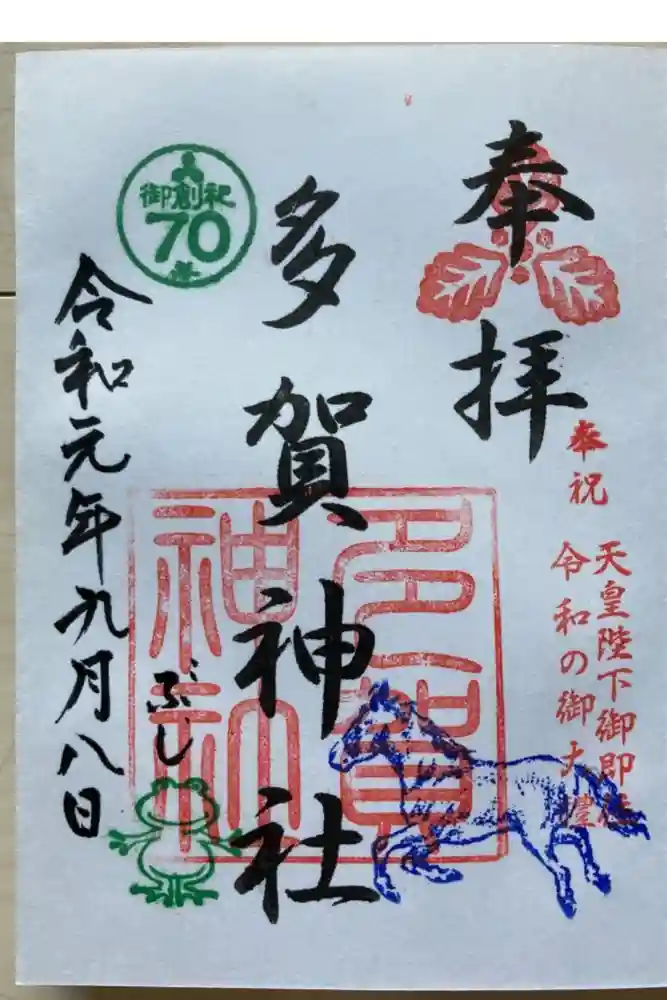 奉拝
奉祝
天皇陛下御即位
令和の御大禮
多賀神社
多賀
神社
御創祀
70
令和元年九月八日
ぶじ